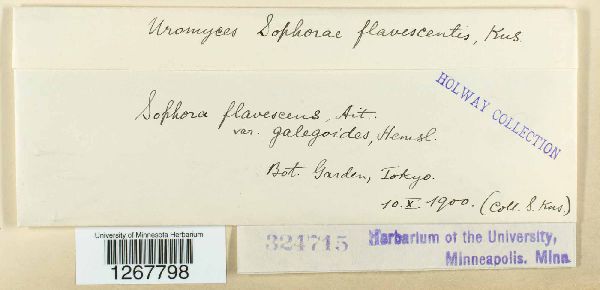 Uromyces Sophorae flavescentis, Kus.
HOLWAY COLLECTION
Sophora flavescens, Ait.
var. galegoides, Hemsl.
Bot. Garden, Tokyo.
10. X. 1900. (Coll. S. Kus.)
University of Minnesota Herbarium
1267798
324715
Herbarium of the University,
Minneapolis. Minn.